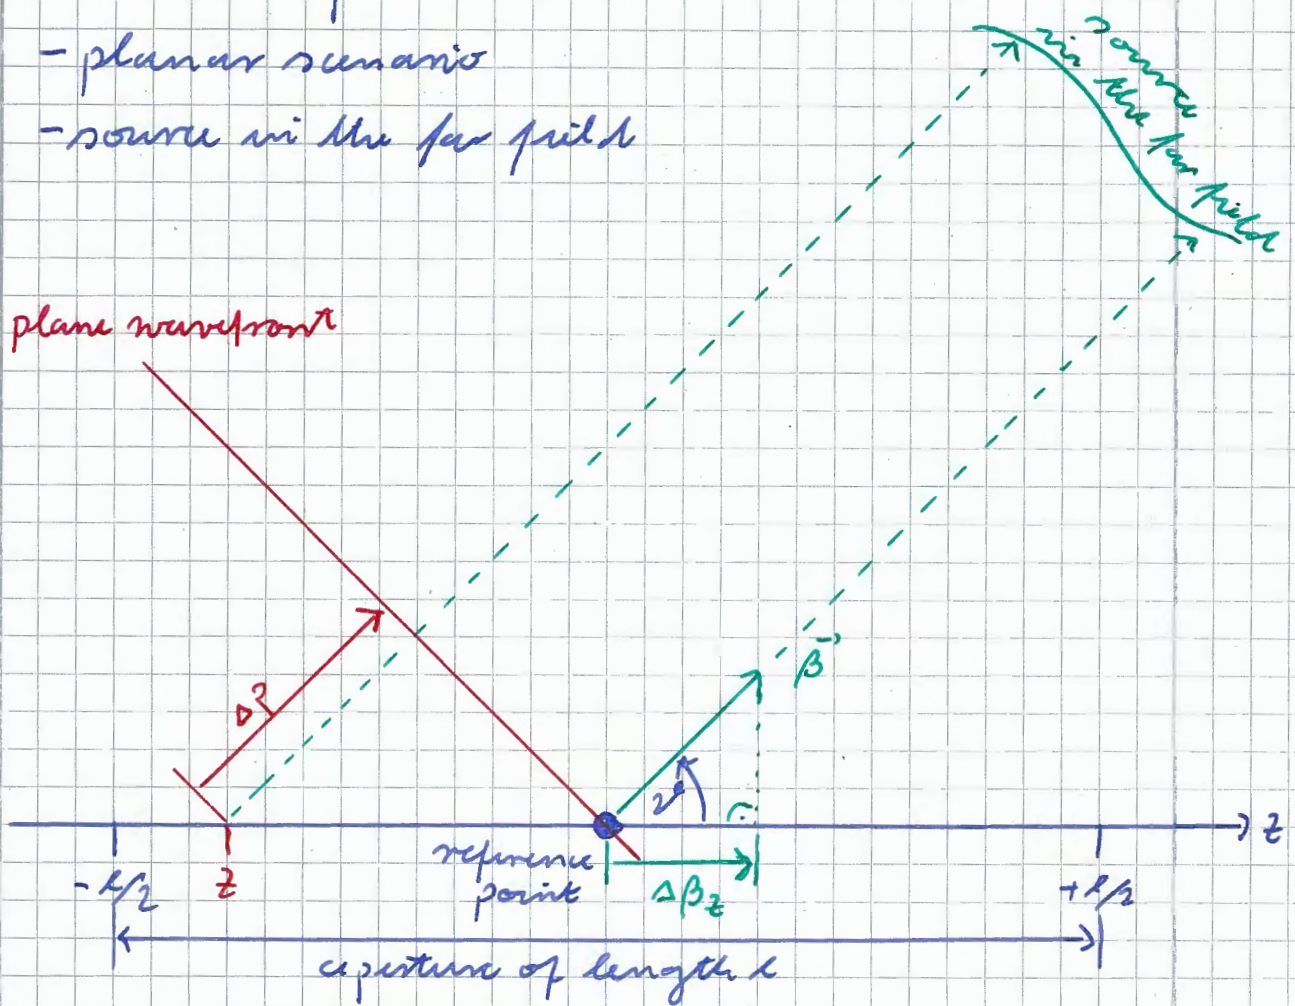 - planar scenario
- source in the far field
source
in the far field
plane wavefront
Δζ
β⃗
ϑ
z
reference
point
-l/2
z
Δβz
+l/2
aperture of length l